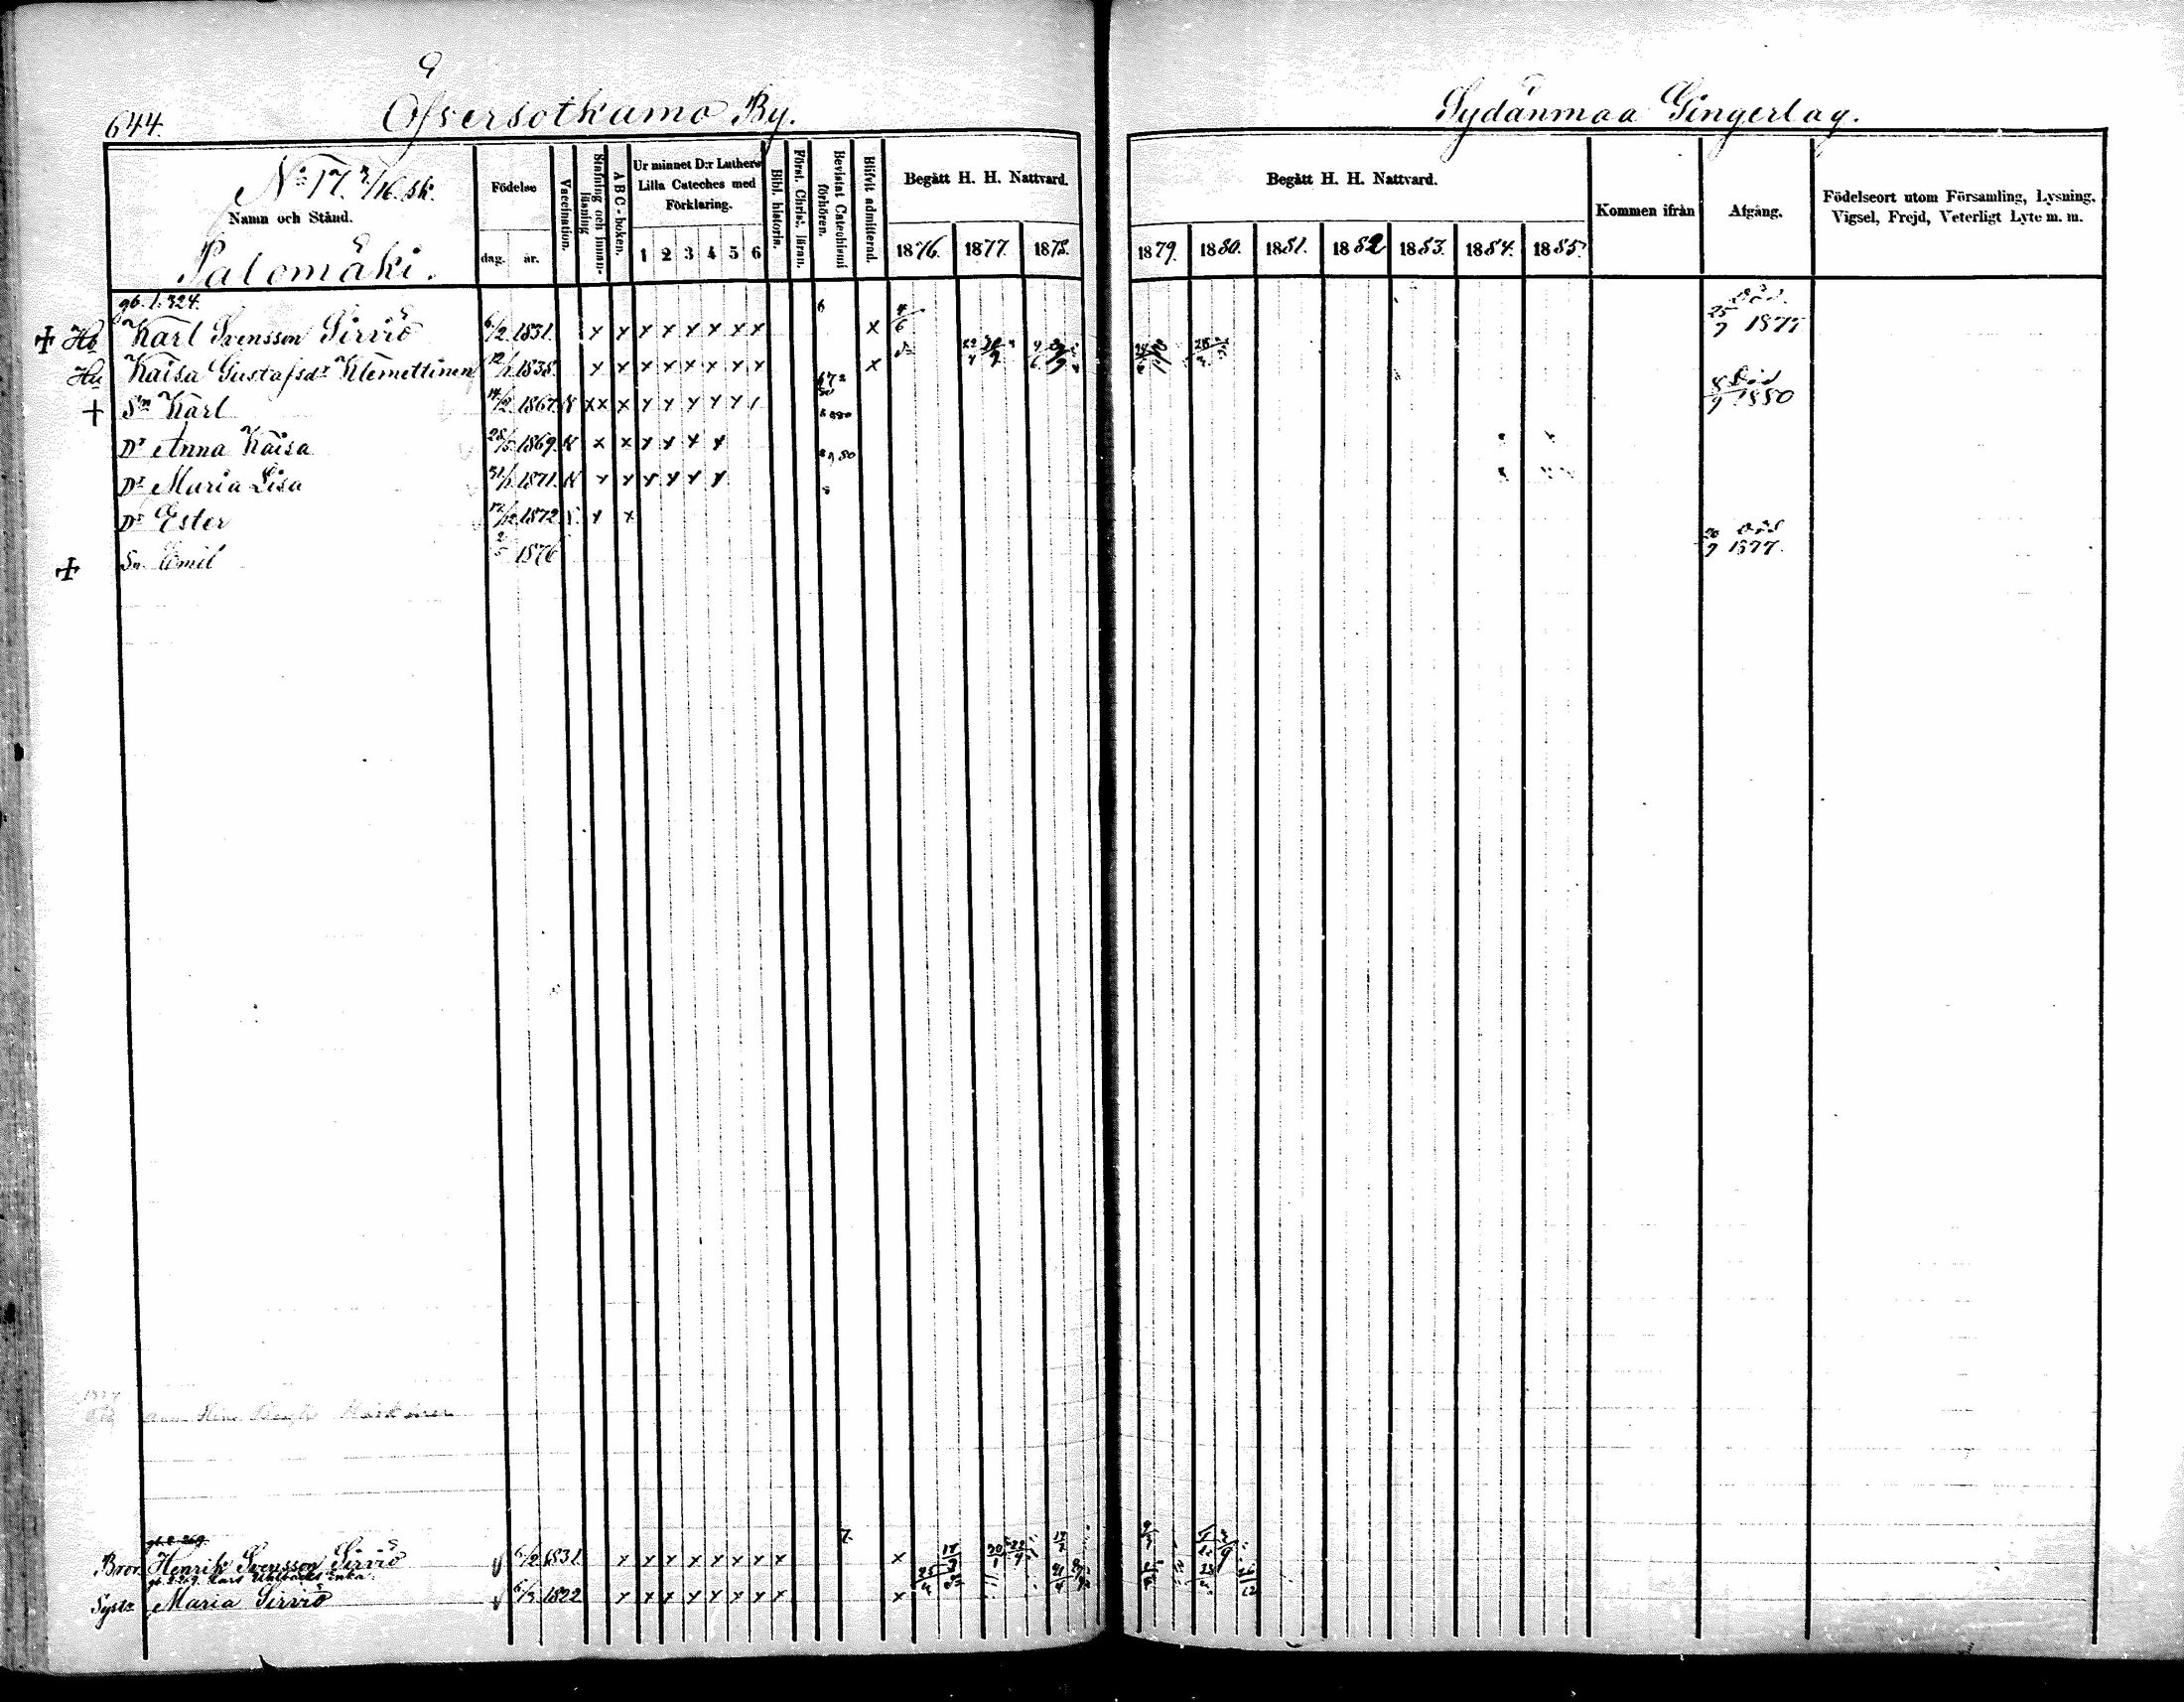 644.
Öfversotkamo By.
Sydänmaa Gingerlag.
No 17. 3/16. sk.
Namn och Stånd.
Palomäki.
Födelse
dag. år.
Vaccination.
Stafning och innanläsning
A B C-boken.
Ur minnet D:r Luthers
Lilla Cateches med
Förklaring.
1 2 3 4 5 6
Bibl. historia.
Först. Christ. läran.
Bevistat Catechismi
förhören.
Blifvit admitterad.
Begått H. H. Nattvard.
1876. 1877. 1878.
Begått H. H. Nattvard.
1879. 1880. 1881. 1882 1883. 1884. 1885.
Kommen ifrån
Afgång.
Födelseort utom Församling, Lysning,
Vigsel, Frejd, Veterligt Lyte m. m.
gb. 1. 324.
Hb Karl Svensson Sirviö 6/2 1831. x x x x x x x x x 4/6 25/9 1877
Hu Kaisa Gustafsdr Klemettinen 12/1 1838. x x x x x x x x x
Sn Karl 14/2 1867. x x x x x x x x 8/9 Död 1880
Dr Anna Kaisa 28/5 1869. x x x x x x
Dr Maria Lisa 31/1 1871. x x x x x x
Dr Ester 12/12 1872 x x
Sn Emil 2/5 1876 20/9 död 1877.
Bror. Henrik Svensson Sirviö 6/2 1831 x x x x x x x x x
Systr Maria Sirviö 1822 x x x x x x x x x